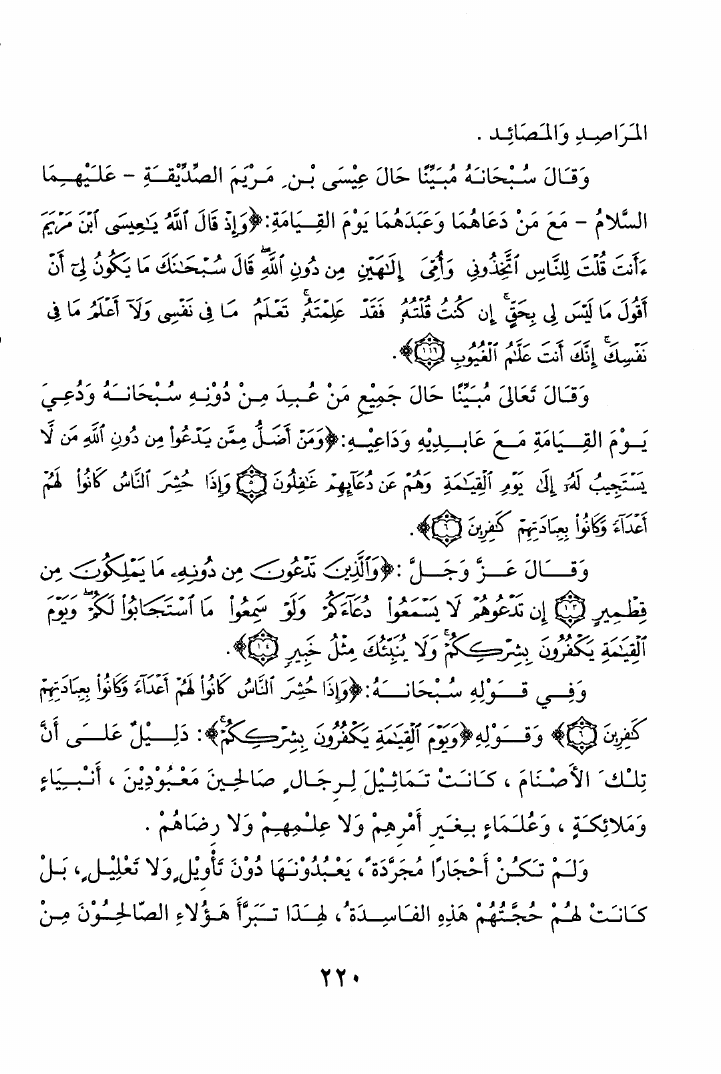 المَرَاصِدِ وَالمَصَائِد .
وَقَالَ سُبْحَانَهُ مُبَيِّنًا حَالَ عِيْسَى بْنِ مَرْيَمَ الصِّدِّيْقَةِ – عَلَيْهِمَا
السَّلامُ – مَعَ مَنْ دَعَاهُمَا وَعَبَدَهُمَا يَوْمَ القِيَامَةِ: ﴿وَإِذْ قَالَ ٱللَّهُ يَٰعِيسَى ٱبْنَ مَرْيَمَ
ءَأَنتَ قُلْتَ لِلنَّاسِ ٱتَّخِذُونِي وَأُمِّيَ إِلَٰهَيْنِ مِن دُونِ ٱللَّهِۖ قَالَ سُبْحَٰنَكَ مَا يَكُونُ لِيٓ أَنْ
أَقُولَ مَا لَيْسَ لِي بِحَقٍّۚ إِن كُنتُ قُلْتُهُۥ فَقَدْ عَلِمْتَهُۥۚ تَعْلَمُ مَا فِي نَفْسِي وَلَآ أَعْلَمُ مَا فِي
نَفْسِكَۚ إِنَّكَ أَنتَ عَلَّٰمُ ٱلْغُيُوبِ ﴿١١٦﴾﴾.
وَقَالَ تَعَالَى مُبَيِّنًا حَالَ جَمِيْعِ مَنْ عُبِدَ مِنْ دُوْنِهِ سُبْحَانَهُ وَدُعِيَ
يَوْمَ القِيَامَةِ مَعَ عَابِدِيْهِ وَدَاعِيْهِ: ﴿وَمَنْ أَضَلُّ مِمَّن يَدْعُوا۟ مِن دُونِ ٱللَّهِ مَن لَّا
يَسْتَجِيبُ لَهُۥٓ إِلَىٰ يَوْمِ ٱلْقِيَٰمَةِ وَهُمْ عَن دُعَآئِهِمْ غَٰفِلُونَ ﴿٥﴾ وَإِذَا حُشِرَ ٱلنَّاسُ كَانُوا۟ لَهُمْ
أَعْدَآءً وَكَانُوا۟ بِعِبَادَتِهِمْ كَٰفِرِينَ ﴿٦﴾﴾.
وَقَالَ عَزَّ وَجَلَّ : ﴿وَٱلَّذِينَ تَدْعُونَ مِن دُونِهِۦ مَا يَمْلِكُونَ مِن
قِطْمِيرٍ ﴿١٣﴾ إِن تَدْعُوهُمْ لَا يَسْمَعُوا۟ دُعَآءَكُمْ وَلَوْ سَمِعُوا۟ مَا ٱسْتَجَابُوا۟ لَكُمْۖ وَيَوْمَ
ٱلْقِيَٰمَةِ يَكْفُرُونَ بِشِرْكِكُمْۚ وَلَا يُنَبِّئُكَ مِثْلُ خَبِيرٍ ﴿١٤﴾﴾.
وَفِي قَوْلِهِ سُبْحَانَهُ: ﴿وَإِذَا حُشِرَ ٱلنَّاسُ كَانُوا۟ لَهُمْ أَعْدَآءً وَكَانُوا۟ بِعِبَادَتِهِمْ
كَٰفِرِينَ ﴿٦﴾﴾ وَقَوْلِهِ ﴿وَيَوْمَ ٱلْقِيَٰمَةِ يَكْفُرُونَ بِشِرْكِكُمْۚ﴾: دَلِيْلٌ عَلَى أَنَّ
تِلْكَ الأَصْنَامَ ، كَانَتْ تَمَاثِيْلَ لِرِجَالٍ صَالِحِينَ مَعْبُوْدِيْنَ ، أَنْبِيَاءٍ
وَمَلائِكَةٍ ، وَعُلَمَاءٍ بِغَيرِ أَمْرِهِمْ وَلا عِلْمِهِمْ وَلا رِضَاهُمْ .
وَلَمْ تَكُنْ أَحْجَارًا مُجَرَّدَةً، يَعْبُدُوْنَهَا دُوْنَ تَأْوِيْلٍ وَلا تَعْلِيْلٍ، بَلْ
كَانَتْ لَهُمْ حُجَّتُهُمْ هَذِهِ الفَاسِدَةُ، لِهَذَا تَبَرَّأَ هَؤُلاءِ الصَّالِحُوْنَ مِنْ
٢٢٠